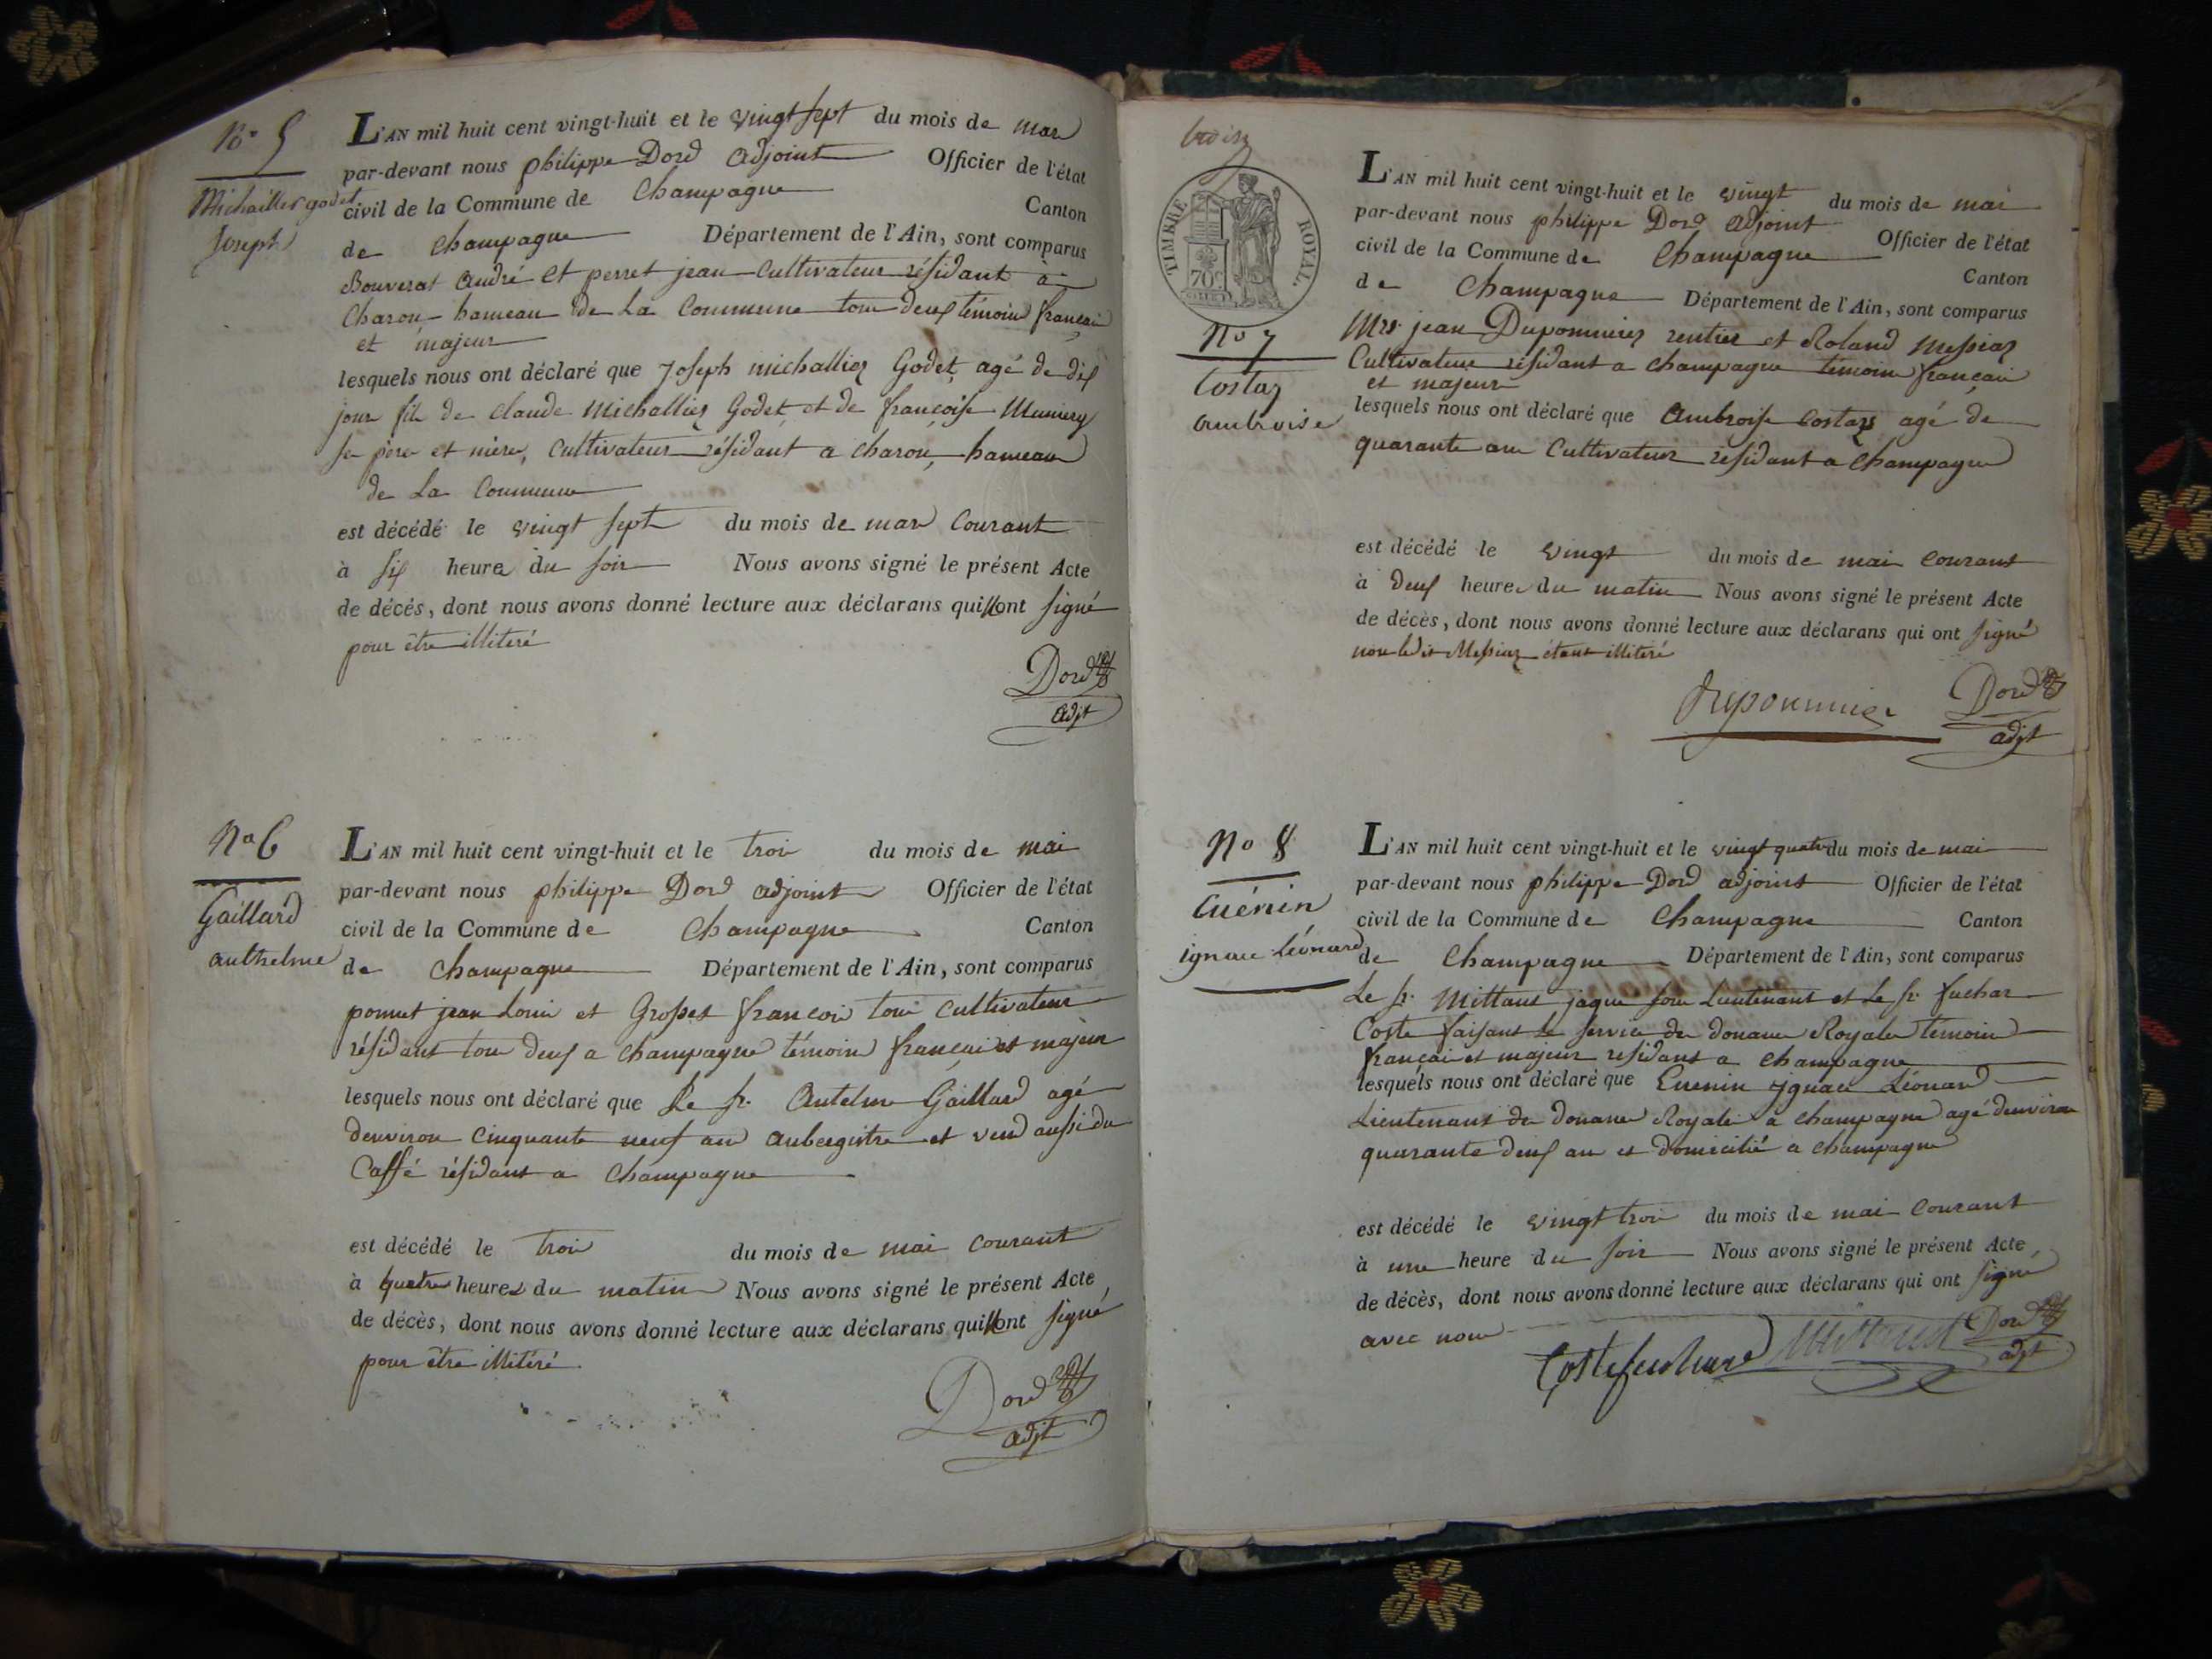 No 5
Michaillez godet
Joseph
L'AN mil huit cent vingt-huit et le vingt sept du mois de mars
par-devant nous philippe Dord adjoint Officier de l'état
civil de la Commune de Champagne Canton
de Champagne Département de l'Ain, sont comparus
Bouverat andré et perret jean Cultivateur résidant à
Charon hameau de La Commune tous deux témoins français
et majeur
lesquels nous ont déclaré que Joseph michalliez Godet agé de dix
jour fils de claude Michalliez Godet et de françoise
se père et mère, Cultivateur résidant a charon, hameau
de La Commune
est décédé le vingt sept du mois de mars Courant
à six heure du soir Nous avons signé le présent Acte
de décés, dont nous avons donné lecture aux déclarans qui ont signé
pour être illiteré
Dord
adjt
No 6
Gaillard
anthelme
L'AN mil huit cent vingt-huit et le trois du mois de mai
par-devant nous philippe Dord adjoint Officier de l'état
civil de la Commune de Champagne Canton
de Champagne Département de l'Ain, sont comparus
ponnet jean Louis et Grosset françois tous cultivateur
résidant tous deux a Champagne témoins français et majeur
lesquels nous ont déclaré que Le sr. Antelme Gaillard agé
denviron cinquante neuf ans aubergistre et vend aussi du
Caffé résidant a Champagne
est décédé le trois du mois de mai courant
à quatre heures du matin Nous avons signé le présent Acte
de décès, dont nous avons donné lecture aux déclarans qui ont signé
pour être illitéré
Dord
adjt
trois
TIMBRE ROYAL
70 C.
No 7
Costaz
ambroise
L'AN mil huit cent vingt-huit et le vingt du mois de mai
par-devant nous philippe Dord adjoint Officier de l'état
civil de la Commune de Champagne Canton
de Champagne Département de l'Ain, sont comparus
Mrs. jean Duponnier rentier et Roland Messiaz
Cultivateur résidant a champagne témoins français
et majeur
lesquels nous ont déclaré que Ambroise Costaz agé de
quarante ans Cultivateur résidant a Champagne
est décédé le vingt du mois de mai courant
à deux heures du matin Nous avons signé le présent Acte
de décès, dont nous avons donné lecture aux déclarans qui ont signé
non ledit Messiaz étant illiteré
Duponnier
Dord
adjt
No 8
Cuénin
ignace Léonard
L'AN mil huit cent vingt-huit et le vingt quatre du mois de mai
par-devant nous philippe Dord adjoint Officier de l'état
civil de la Commune de Champagne Canton
de Champagne Département de l'Ain, sont comparus
Le sr. Mittant jaque sous Lieutenant et Le sr. fuchar
Coste faisant le service de douane Royale témoins
français et majeur résidant a champagne
lesquels nous ont déclaré que Cuenin ygnace Léonard
Lieutenant de Douane Royale a champagne agé denviron
quarante deux ans et domicilié a champagne
est décédé le vingt trois du mois de mai courant
à une heure du soir Nous avons signé le présent Acte
de décès, dont nous avons donné lecture aux déclarans qui ont signé
avec nous
Dord
adjt